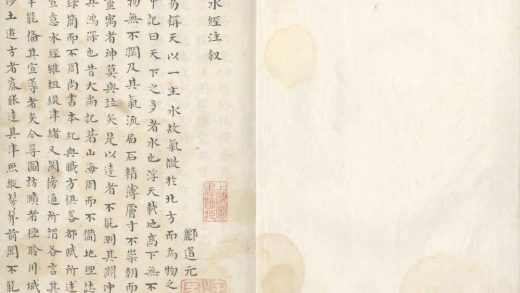 水經注叙
酈道元
易稱天以一生水故氣微於北方而為物之
中記曰天下之多者水也浮天載地高下無不
物無不潤及其氣流屆石精薄膚寸不崇朝而
靈寓者神莫與並矣是以達者不能測其淵沖
其鴻深也昔大禹記著山海周而不俻地理誌
錄簡而不周尚書本紀與職方俱畧都賦所述
宣意水經雖粗綴津緒又闕傍通所謂各言其
罕能俻其宣導者矣今尋圖訪賾者極聆川域
涉土遊方者寡能達其津照縱髣髴前聞不能